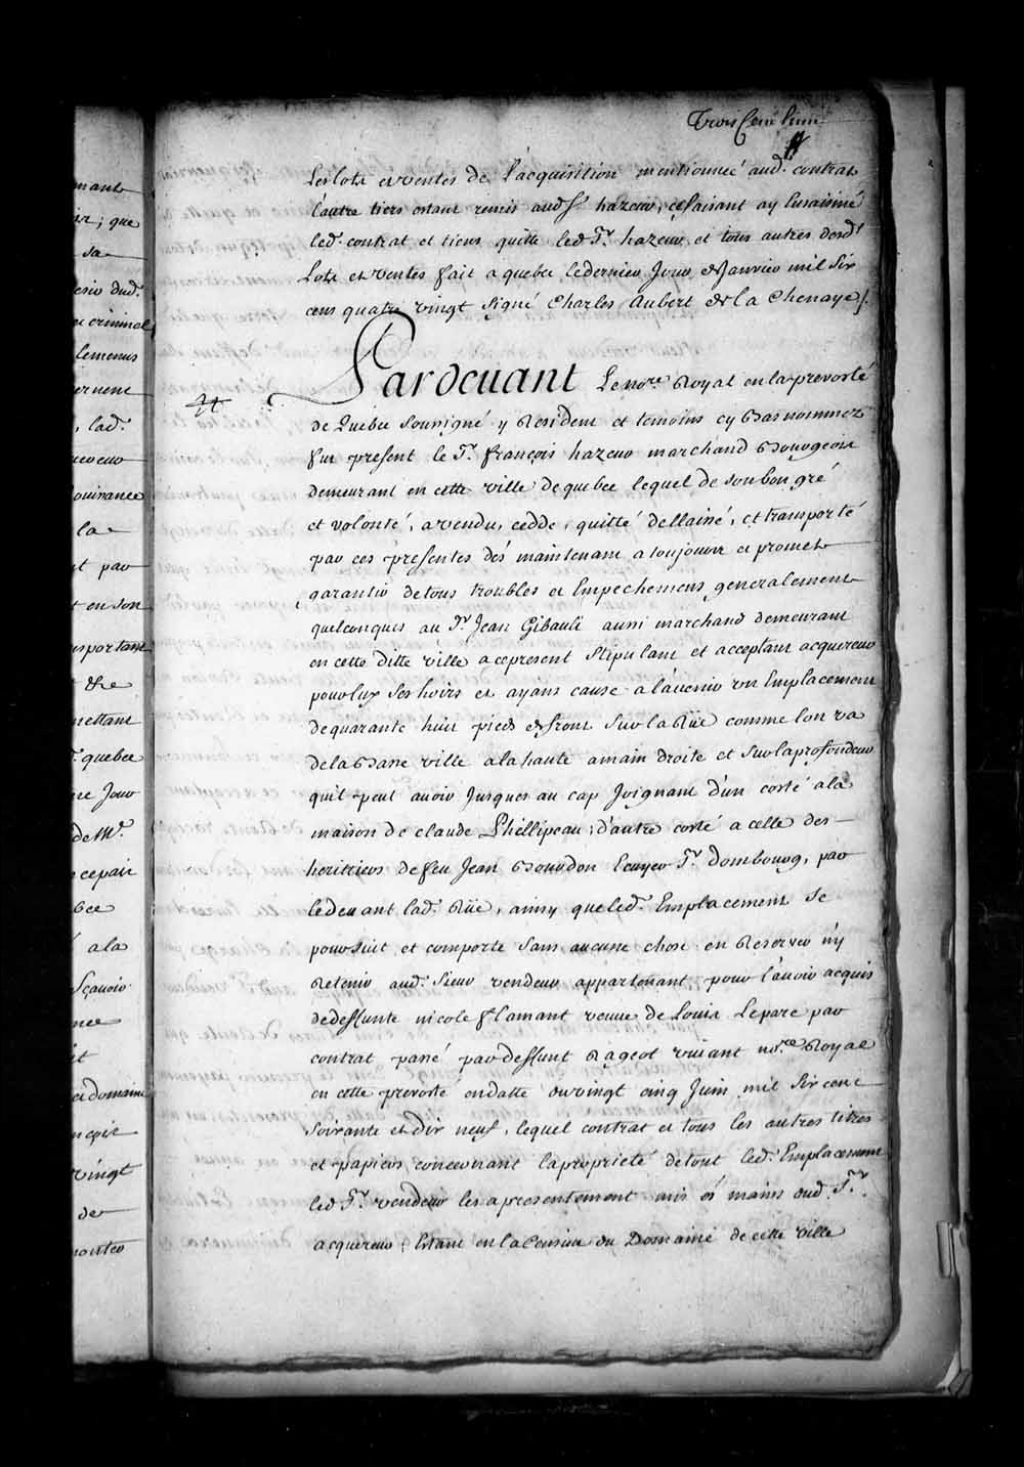 Trois Cent huit
Les lots et ventes de l'acquisition mentionneé aud. contrat
l'autre tiers estant remis aud Sr. hazeur, ce faisant ay Ensaisiné
led. contrat et tiens quitte led Sr. hazeur et tous autres desdt.
Lots et ventes fait a quebec le dernier Jour de Janvier mil Six
cens quatre vingt Signé Charles Aubert de la Chenaye /.
Pardeuant Le nore. Royal en la prevosté
de Quebec Sousigné y Resident et temoins cy Bas nommez
fut present le Sr. françois hazeur marchand Bourgeois
demeurant en cette ville de quebec lequel de son bon gré
et volonté, a vendu, cedde, quitté dellaissé, et transporté
par ces presentes dés maintenant a toujours et promet
garantir de tous troubles et Empechemens generalement
quelconques au Sr. Jean Gibault aussi marchand demeurant
en cette ditte ville a ce present Stipulant et acceptant acquereur
pour luy Ses hoirs et ayans cause a l'auenir un Emplacement
de quarante huit pieds de front Sur la Rüe comme l'on va
de la Basse ville a la haute a main droite et Sur la profondeur
qu'il peut auoir Jusques au cap Joignant d'un costé a la
maison de claude Phillipeau; d'autre costé a celle des
heritiers de feu Jean Bourdon Ecuyer Sr. dombourg, par
le deuant lad. Rüe, ainsy que led. Emplacement Se
poursuit et comporte Sans aucune chose en Reserver n'y
Retenir aud. Sieur vendeur appartenant pour l'auoir acquis
de deffunte nicole flamant veuue de Louis Lepare par
contrat passé par deffunt Rageot viuant nore. Royal
en cette prevosté en datte du vingt cinq Juin mil Six cent
Soixante et dix neuf, lequel contrat et tous les autres titres
et papiers concernant la proprieté de tout led. Emplacement
led. Sr. vendeur les a presentement mis es mains dud. Sr.
acquereur; Estant en la Censive du Domaine de cette ville
mant
que
sa
dud.
criminel
lad.
la
par
en son
quebec
Jour
de Mr.
a la
Sçauoir
domaine
vingt
de